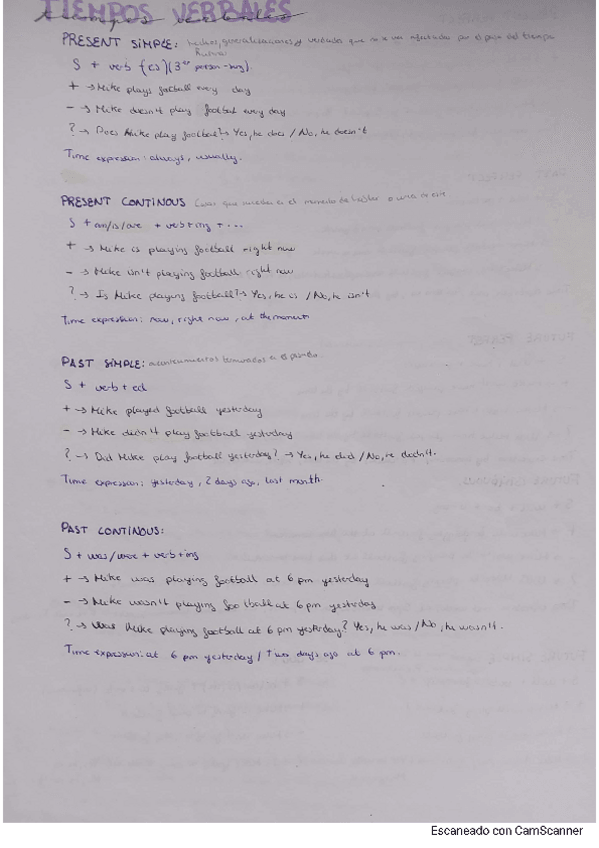 TIEMPOS VERBALES
PRESENT SIMPLE: hechos, generalizaciones y verdades que no se ven afectadas por el paso del tiempo
Rutinas
S + verb (es) (3er person - sing)
+ → Mike plays football every day
- → Mike doesn't play football every day
? → Does Mike play football? → Yes, he does / No, he doesn't
Time expression: always, usually.
PRESENT CONTINOUS Cosas que suceden en el momento de hablar o
S + am/is/are + verb + ing + ...
+ → Mike is playing football right now
- → Mike isn't playing football right now
? → Is Mike playing football? → Yes, he is / No, he isn't
Time expression: now, right now, at the moment
PAST SIMPLE: acontecimientos terminados en el pasado
S + verb + ed
+ → Mike played football yesterday
- → Mike didn't play football yesterday
? → Did Mike play football yesterday? → Yes, he did / No, he didn't.
Time expression: yesterday, 2 days ago, last month.
PAST CONTINOUS:
S + was/were + verb + ing
+ → Mike was playing football at 6 pm yesterday
- → Mike wasn't playing football at 6 pm yesterday
? → Was Mike playing football at 6 pm yesterday? Yes, he was / No, he wasn't.
Time expression: at 6 pm yesterday / Two days ago at 6 pm.
Escaneado con CamScanner